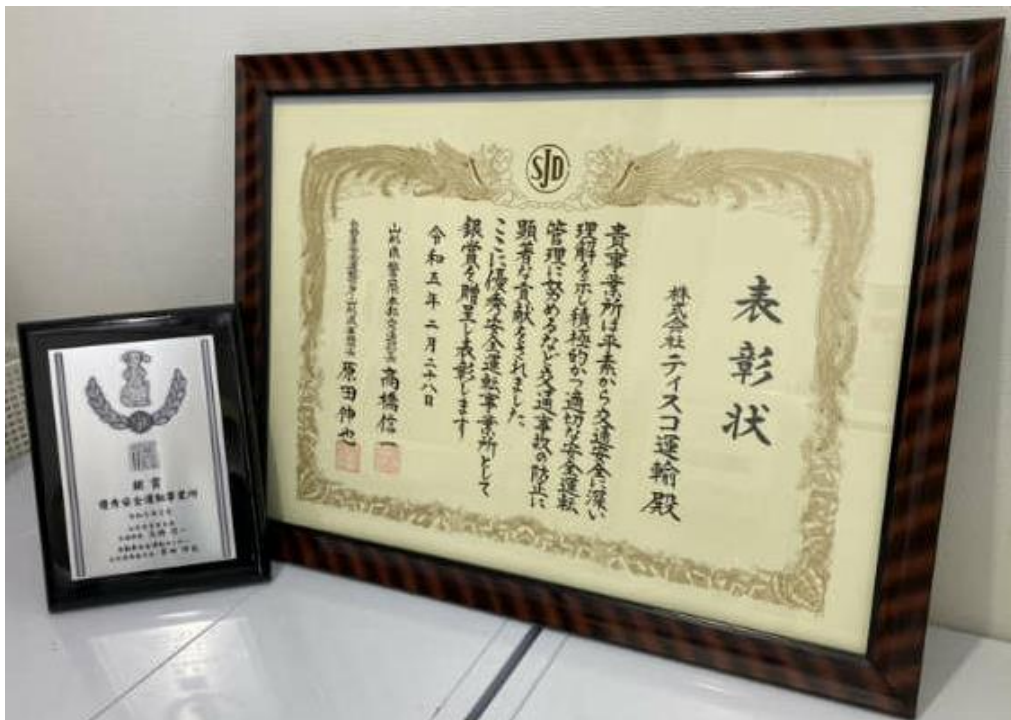 SJD
表彰状
株式会社ティスコ運輸殿
貴事業所は平素から交通安全に深い
理解を示し積極的かつ適切な安全運転
管理に努めるなど交通事故の防止に
顕著な貢献をされました
ここに優秀安全運転事業所として
銀賞を贈呈し表彰します
令和五年二月二十八日
山形県警察本部交通部長 高橋信一
自動車安全運転センター山形県事務所長 原田伸也
銀賞
優秀安全運転事業所